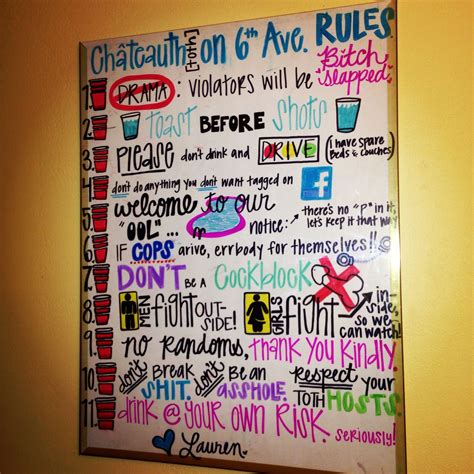 Châteauth [toth] on 6th Ave. RULES
1. DRAMA: violators will be Bitch slapped.
2. TOAST BEFORE Shots
3. Please don't drink and DRIVE (I have spare Beds & couches)
4. don't do anything you don't want tagged on f
5. welcome to our "OOL"... notice: there's no "P" in it, let's keep it that way
6. IF COPS arive, errbody for themselves!!
7. DON'T Be a Cockblock
8. MEN fight OUTSIDE! GIRLS fight inside, so we can watch!
9. no randoms, thank you kindly.
10. don't Break SHIT. don't Be an asshole. Respect your TOTH HOSTS.
11. drink @ your own RISK. seriously!
Lauren.